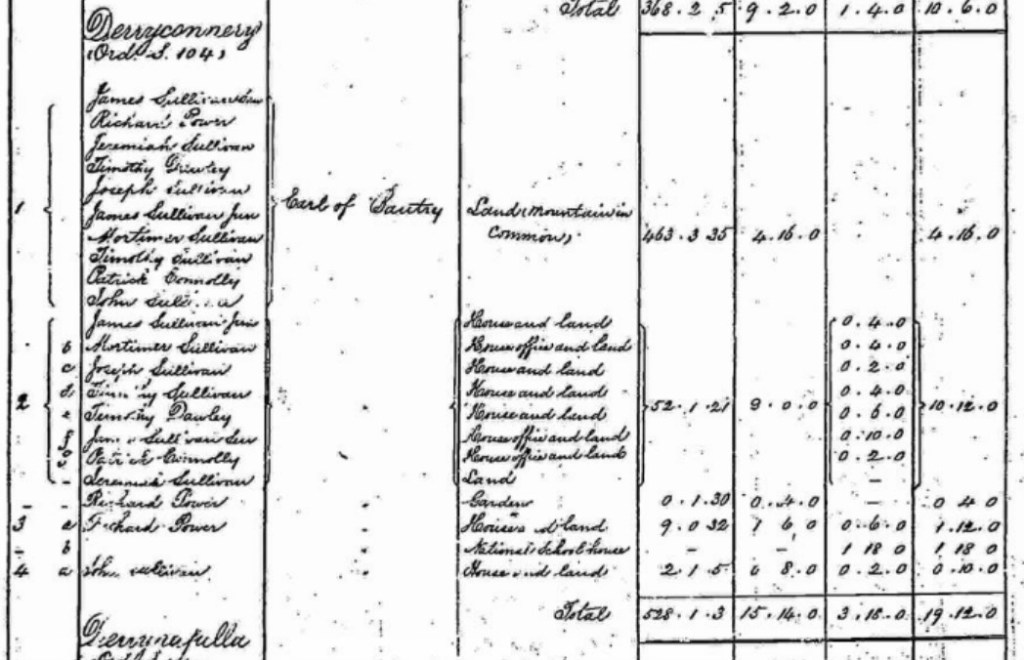 Total 368.2.5 9.2.0 1.4.0 10.6.0
Derryconnery
(Ord. S. 104)
James Sullivan Sen
Richard Power
Jeremiah Sullivan
Timothy
Joseph Sullivan
1 James Sullivan Jun Earl of Bantry Land (mountain in
Mortimer Sullivan common) 463.3.35 4.16.0 4.16.0
Timothy Sullivan
Patrick Connolly
John
James Sullivan Jun House and land 0.4.0
b Mortimer Sullivan House office and land 0.4.0
c Joseph Sullivan House and land 0.2.0
d Timothy Sullivan House and land 0.4.0
2 e Timothy Dawley " House and land 52.1.21 9.0.0 0.6.0 10.12.0
f James Sullivan Sen House office and land 0.10.0
g Patrick Connolly " House office and land 0.2.0
- Jeremiah Sullivan Land -
- - Richard Power " Garden 0.1.30 0.4.0 - 0 4 0
3 a Richard Power " House and land 9.0.32 1 6 0 0.6.0 1.12.0
- b " National School house - - 1 18 0 1 18 0
4 a John Sullivan " House and land 2.1.5 0 8.0 0.2.0 0.10.0
Total 528.1.3 15.14.0 3.18.0 19.12.0
Derrynafulla